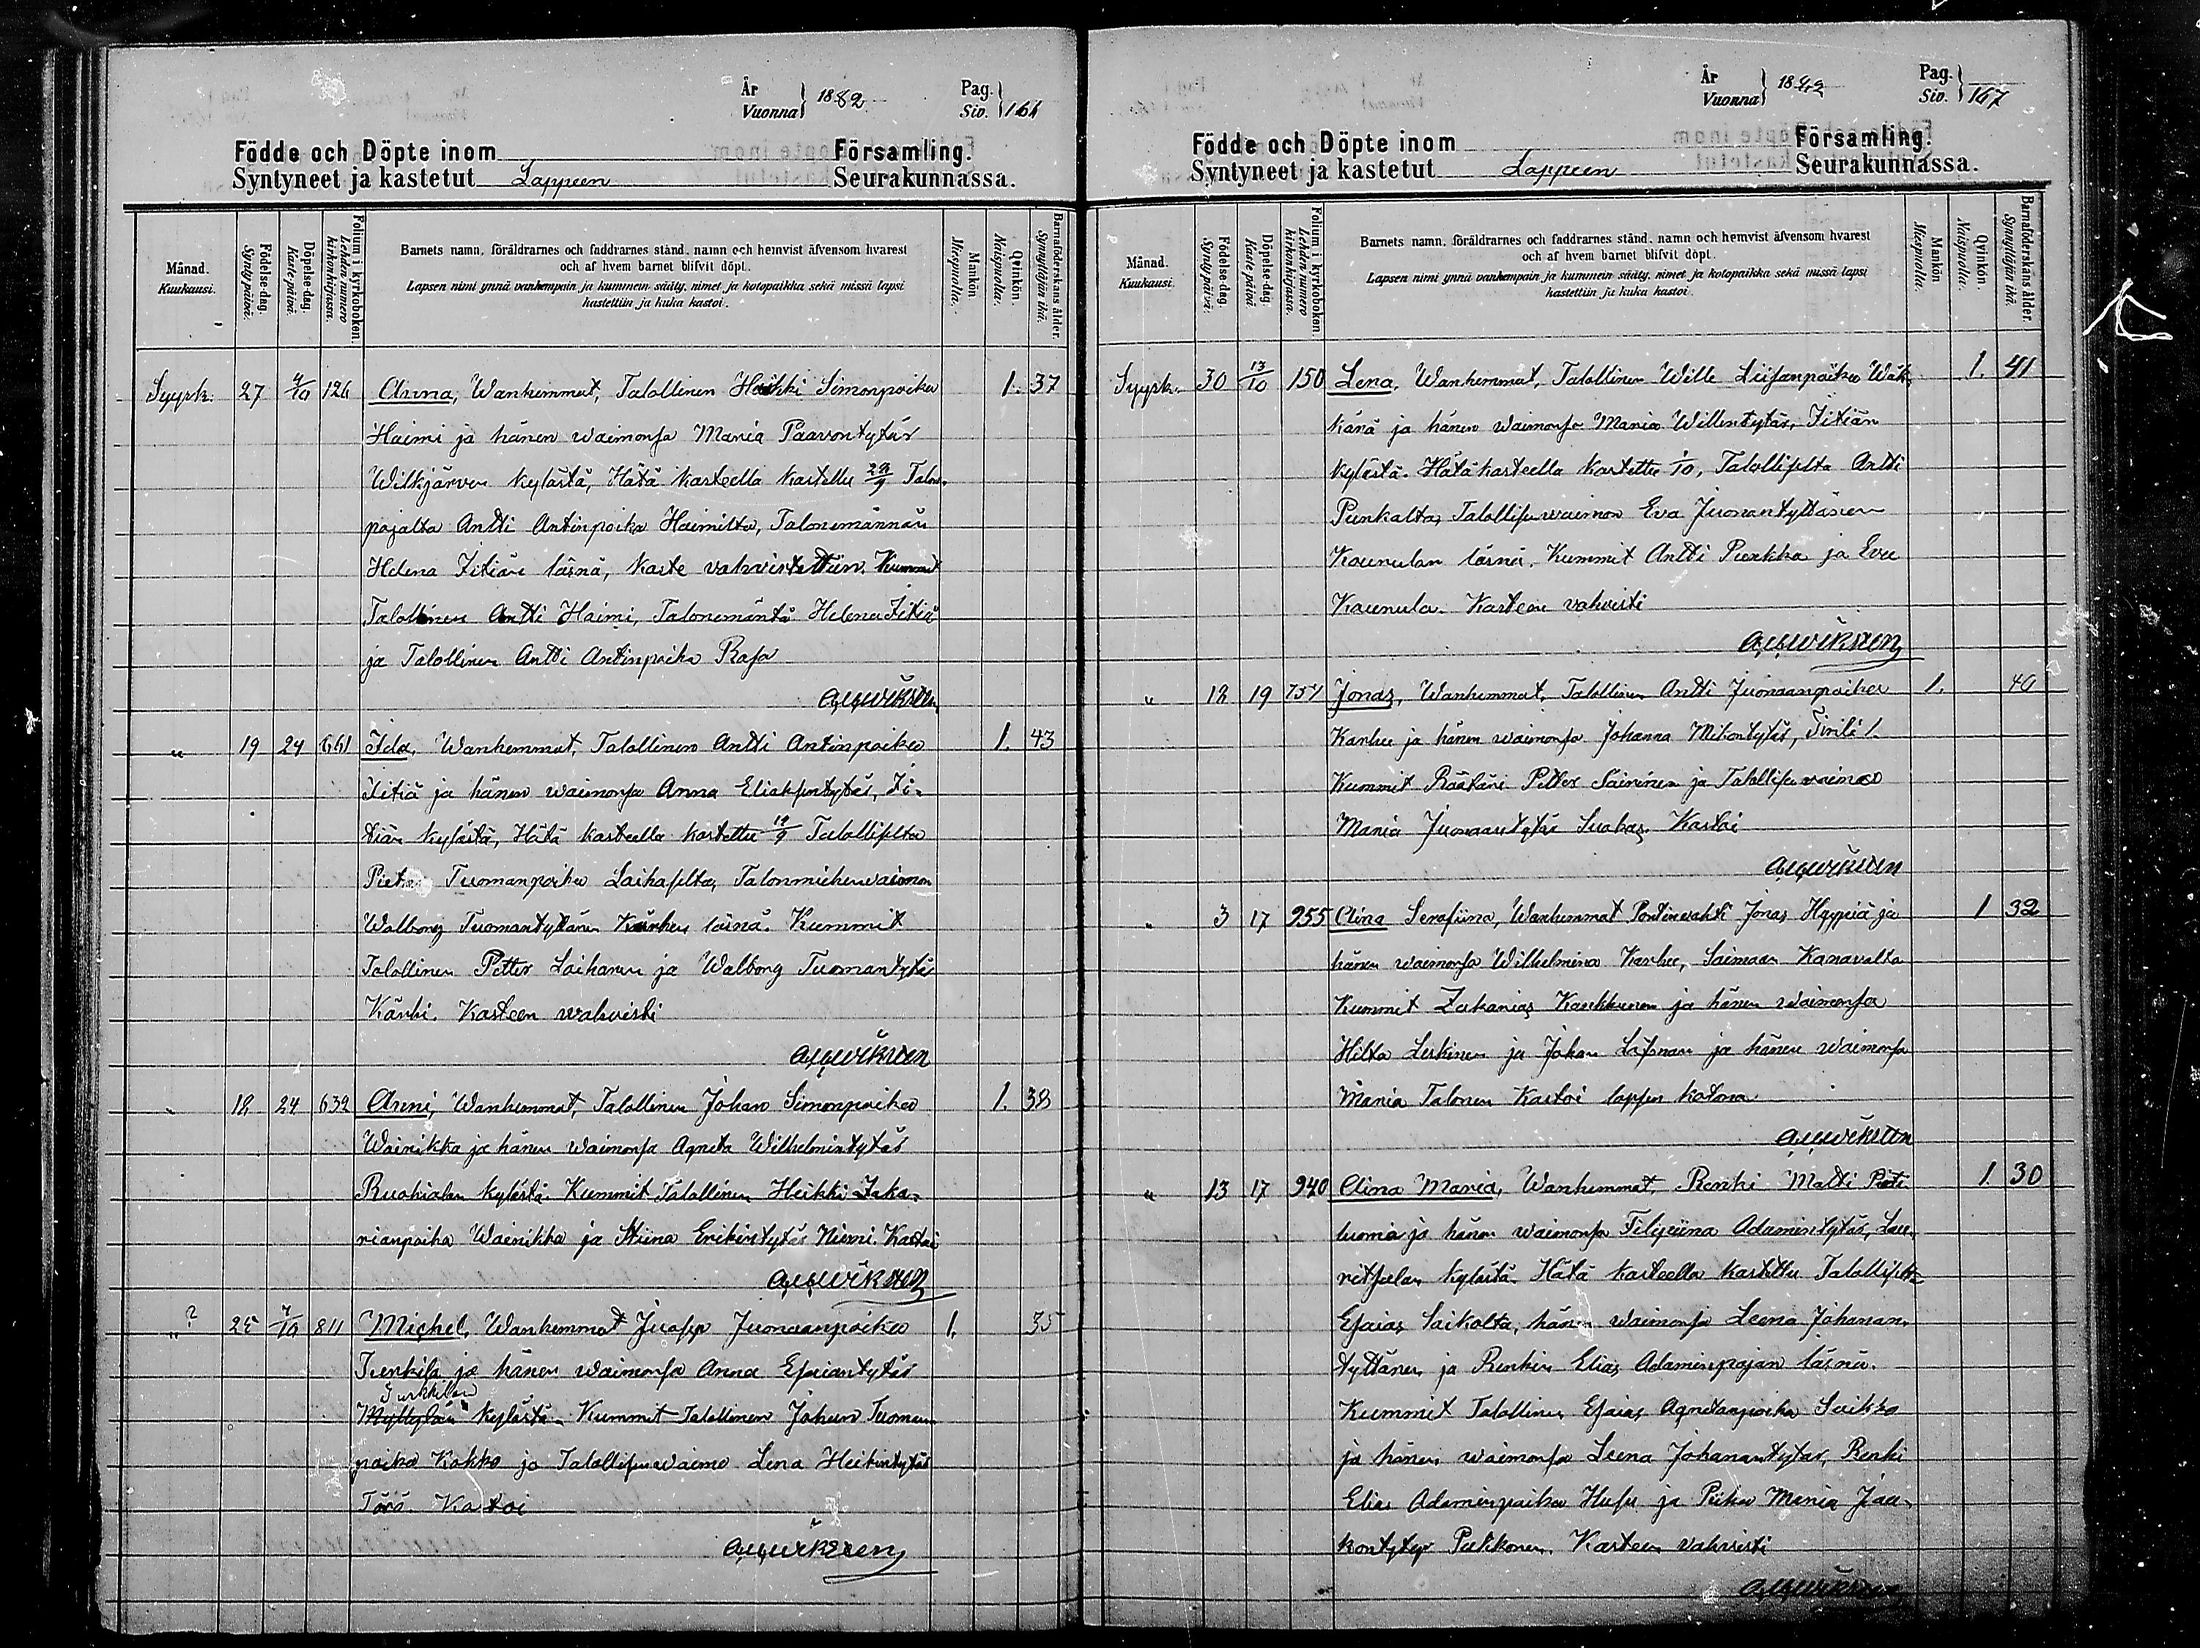 År
Vuonna 1882
Pag.
Siv. 166
Födde och Döpte inom Församling.
Syntyneet ja kastetut Lappeen Seurakunnassa.
Månad. Kuukausi.
Födelse-dag. Syntypäivä.
Döpelse-dag. Kastepäivä.
Folium i kyrkoboken. Lehden numero kirkonkirjassa.
Barnets namn, föräldrarnes och faddrarnes stånd, namn och hemvist äfvensom hvarest
och af hvem barnet blifvit döpt.
Lapsen nimi ynnä vanhempain ja kummein sääty, nimet ja kotopaikka sekä missä lapsi
kastettiin ja kuka kastoi.
Mankön Miespuolia.
Qvinkön. Naispuolia.
Barnaföderskans ålder. Synnyttäjän ikä.
Syysk. 27 4/10 126 Anna, Wanhemmat, Talollinen Heikki Simonpoika 1. 37
Haimi ja hänen waimonsa Maria Paavontytär
Wilkjärven kylästä, Hätä kasteella kastettu 28/9 Talon-
pojalta Antti Antinpoika Haimilta, Talonemännän
Helena Itiän läsnä, kaste vahvistettiin. Kummit
Talollinen Antti Haimi, Talonemäntä Helena Itiä
ja Talollinen Antti Antinpoika Rasa
" 19 24 661 Ida, Wanhemmat, Talollinen Antti Antinpoika 1. 43
Itiä ja hänen waimonsa Anna Eliaksentytär, Iti-
tiän kylästä, Hätä kasteella kastettu 19/9 Talolliselta
Tuomanpoika Laihaselta, Talonmiehenwaimon
Walborg Tuomantytären Kärhen läsnä. Kummit
Talollinen Petter Laihanen ja Walborg Tuomantytär
Kärhi. Kasteen wahvisti
" 18 24 639 Anni, Wanhemmat, Talollinen Johan Simonpoika 1. 38
Wainikka ja hänen waimonsa Agneta Wilhelmintytär
Ruohialan kylästä. Kummit Talollinen Heikki Zaka-
rianpoika Wainikka ja Stiina Erikintytär Niemi. Kastoi
" ? 25 7/10 811 Michel, Wanhemmat Juosep Juonaanpoika 1. 35
ja hänen waimonsa Anna Esaiantytär
Jurkkilan
Myllylän kylästä. Kummit Talollinen Johan Tuoman
poika Kokko ja Talollisenwaimo Lena Heikintytär
Törö. Kastoi
År
Vuonna 1882
Pag.
Siv. 167
Födde och Döpte inom Församling.
Syntyneet ja kastetut Lappeen Seurakunnassa.
Månad. Kuukausi.
Födelse-dag. Syntypäivä.
Döpelse-dag. Kastepäivä
Folium i kyrkoboken. Lehden numero kirkonkirjassa.
Barnets namn, föräldrarnes och faddrarnes stånd, namn och hemvist äfvensom hvarest
och af hvem barnet blifvit döpt.
Lapsen nimi ynnä vanhempain ja kummein sääty, nimet ja kotopaikka sekä missä lapsi
kastettiin ja kuka kastoi.
Mankön Miespuolia.
Qvinkön. Naispuolia.
Barnaföderskans ålder. Synnyttäjän ikä.
Syysk. 30 13/10 150 Lena, Wanhemmat, Talollinen Wille Liisanpoika Wäk- 1. 41
ja hänen waimonsa Maria Willentytär, Itiän
kylästä. Hätä kasteella kastettu 1/10, Talolliselta Antti
Punkalta, Talollisenwaimon Eva Juonantyttären
Kaunulan läsnä. Kummit Antti Punkka ja Eva
Kaunula. Kasteen vahvisti
" 12 19 754 Jonas, Wanhemmat, Talollinen Antti Juonaanpoika 1. 40
Karhu ja hänen waimonsa Johanna Mikontytär,
Kummit Räätäri Petter Sairinen ja Talollisenwaimo
Maria Juonaantytär. Kastoi
" 3 17 955 Alina Serafiina, Wanhemmat Portinvahti Jonas Hyypiä ja 1 32
hänen waimonsa Wilhelmina Karhu, Saimaan Kanavalta
Kummit Zakarias Kaukkunen ja hänen waimonsa
Hilta Leskinen ja Johan ja hänen waimonsa
Maria Talonen Kastoi lapsen kotona
" 13 17 940 Alina Maria, Wanhemmat, Renki Matti 1. 30
ja hänen waimonsa Filipiina Adamintytär, Lau-
ritsalan kylästä. Hätä kasteella kastettu Talolliselta
Esaias Saikolta, hänen waimonsa Leena Johanan-
tyttären ja Renkin Elias Adaminpojan läsnä.
Kummit Talollinen Esaias Agnetanpoika Saikko
ja hänen waimonsa Leena Johanantytär, Renki
Elias Adaminpoika Husu ja Piika Maria Jaa-
kontytär Pukkonen. Kasteen vahvisti